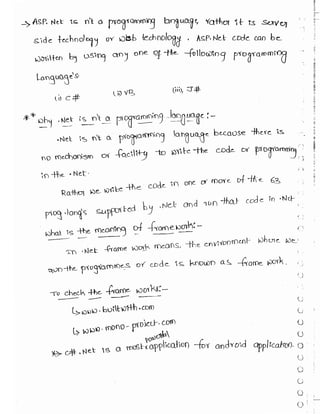 → ASP. Net is n't a programming language, rather it is server
side technology or web technology. ASP.Net code can be
written by using any one of the following programming
Language's
(i) C# (ii) VB, (iii) J#
** why .Net is n't a programming language :-
.Net is n't a programming language because there is
no mechanism or facility to write the code or programming
in the .Net.
Rather we write the code in one or more of the 63
prog.lang's supported by .Net and run that code in .Net.
What is the meaning of framework:-
In .Net frame work means, the environment where we
run the programmes or code is known as frame work.
To check the frame works:-
↳ www.builtwith.com
↳ www.mono-project.com
powerful
C#.Net is a most application for android application.